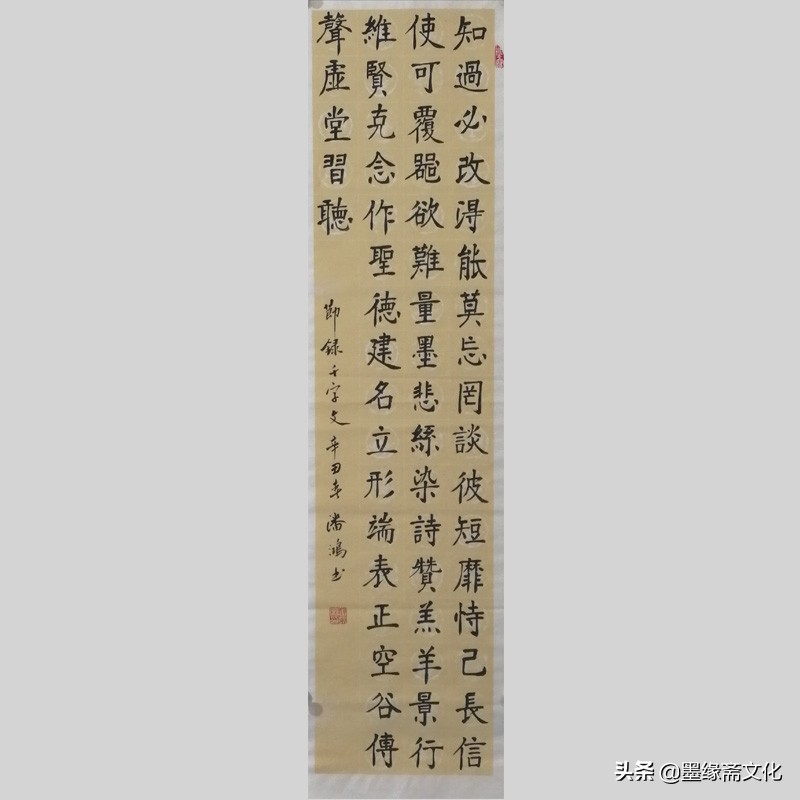 知過必改淂能莫忘罔談彼短靡恃己長信
使可覆器欲難量墨悲絲染詩贊羔羊景行
維賢克念作聖德建名立形端表正空谷傳
聲虛堂習聽
節録千字文辛丑春潘鴻书
头条 @墨缘斋文化